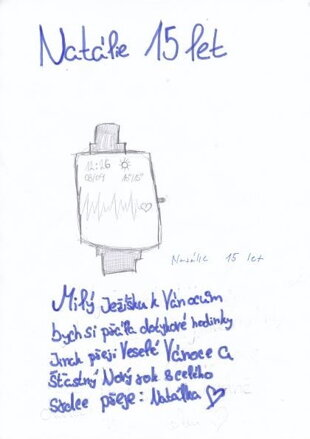 Natálie 15 let
12:26
08/09 15°/15°
Natálie 15 let
Milý Ježíšku k Vánocům
bych si přála dotykové hodinky
Jinak přeji Veselé Vánoce a
Šťastný Nový rok z celého
Srdce přeje: Natálka